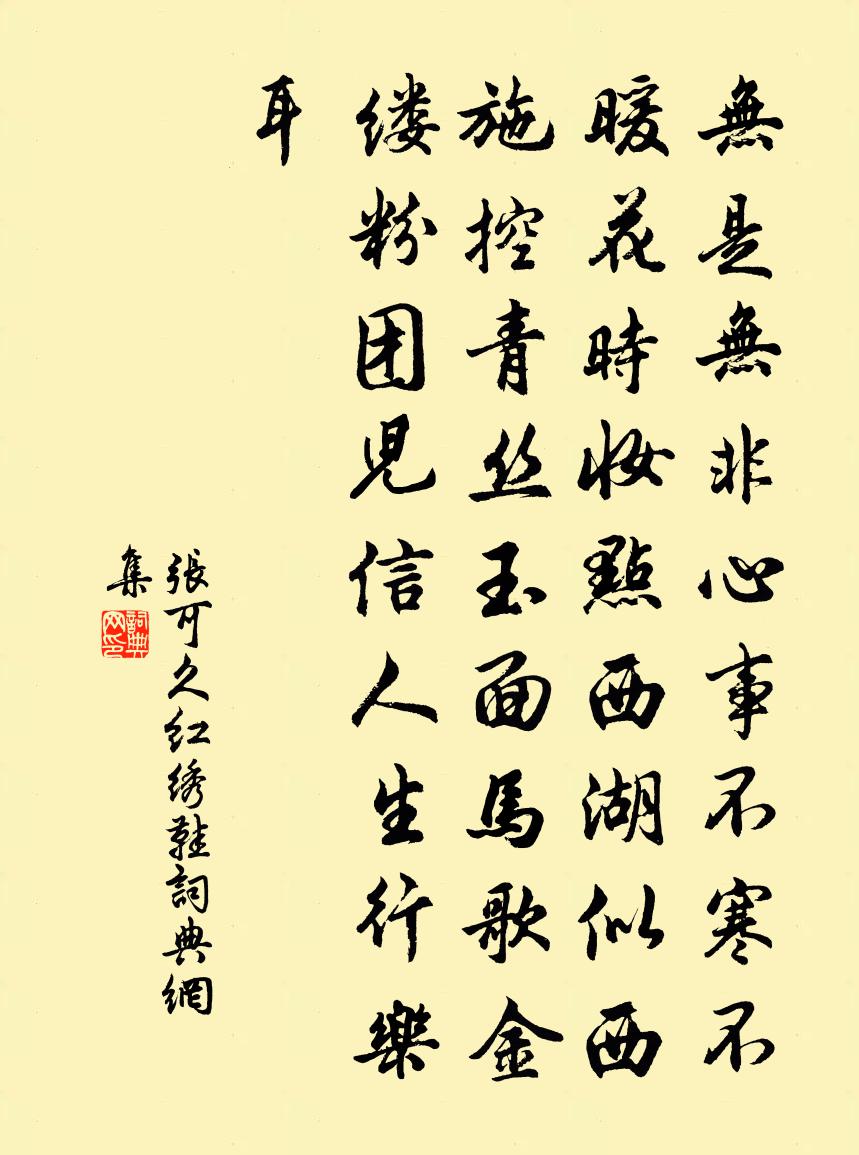 無是無非心事不寒不
暖花時妝點西湖似西
施控青丝玉面馬歌金
缕粉团兒信人生行樂
耳
張可久红绣鞋詞典網
集
詞典
网印